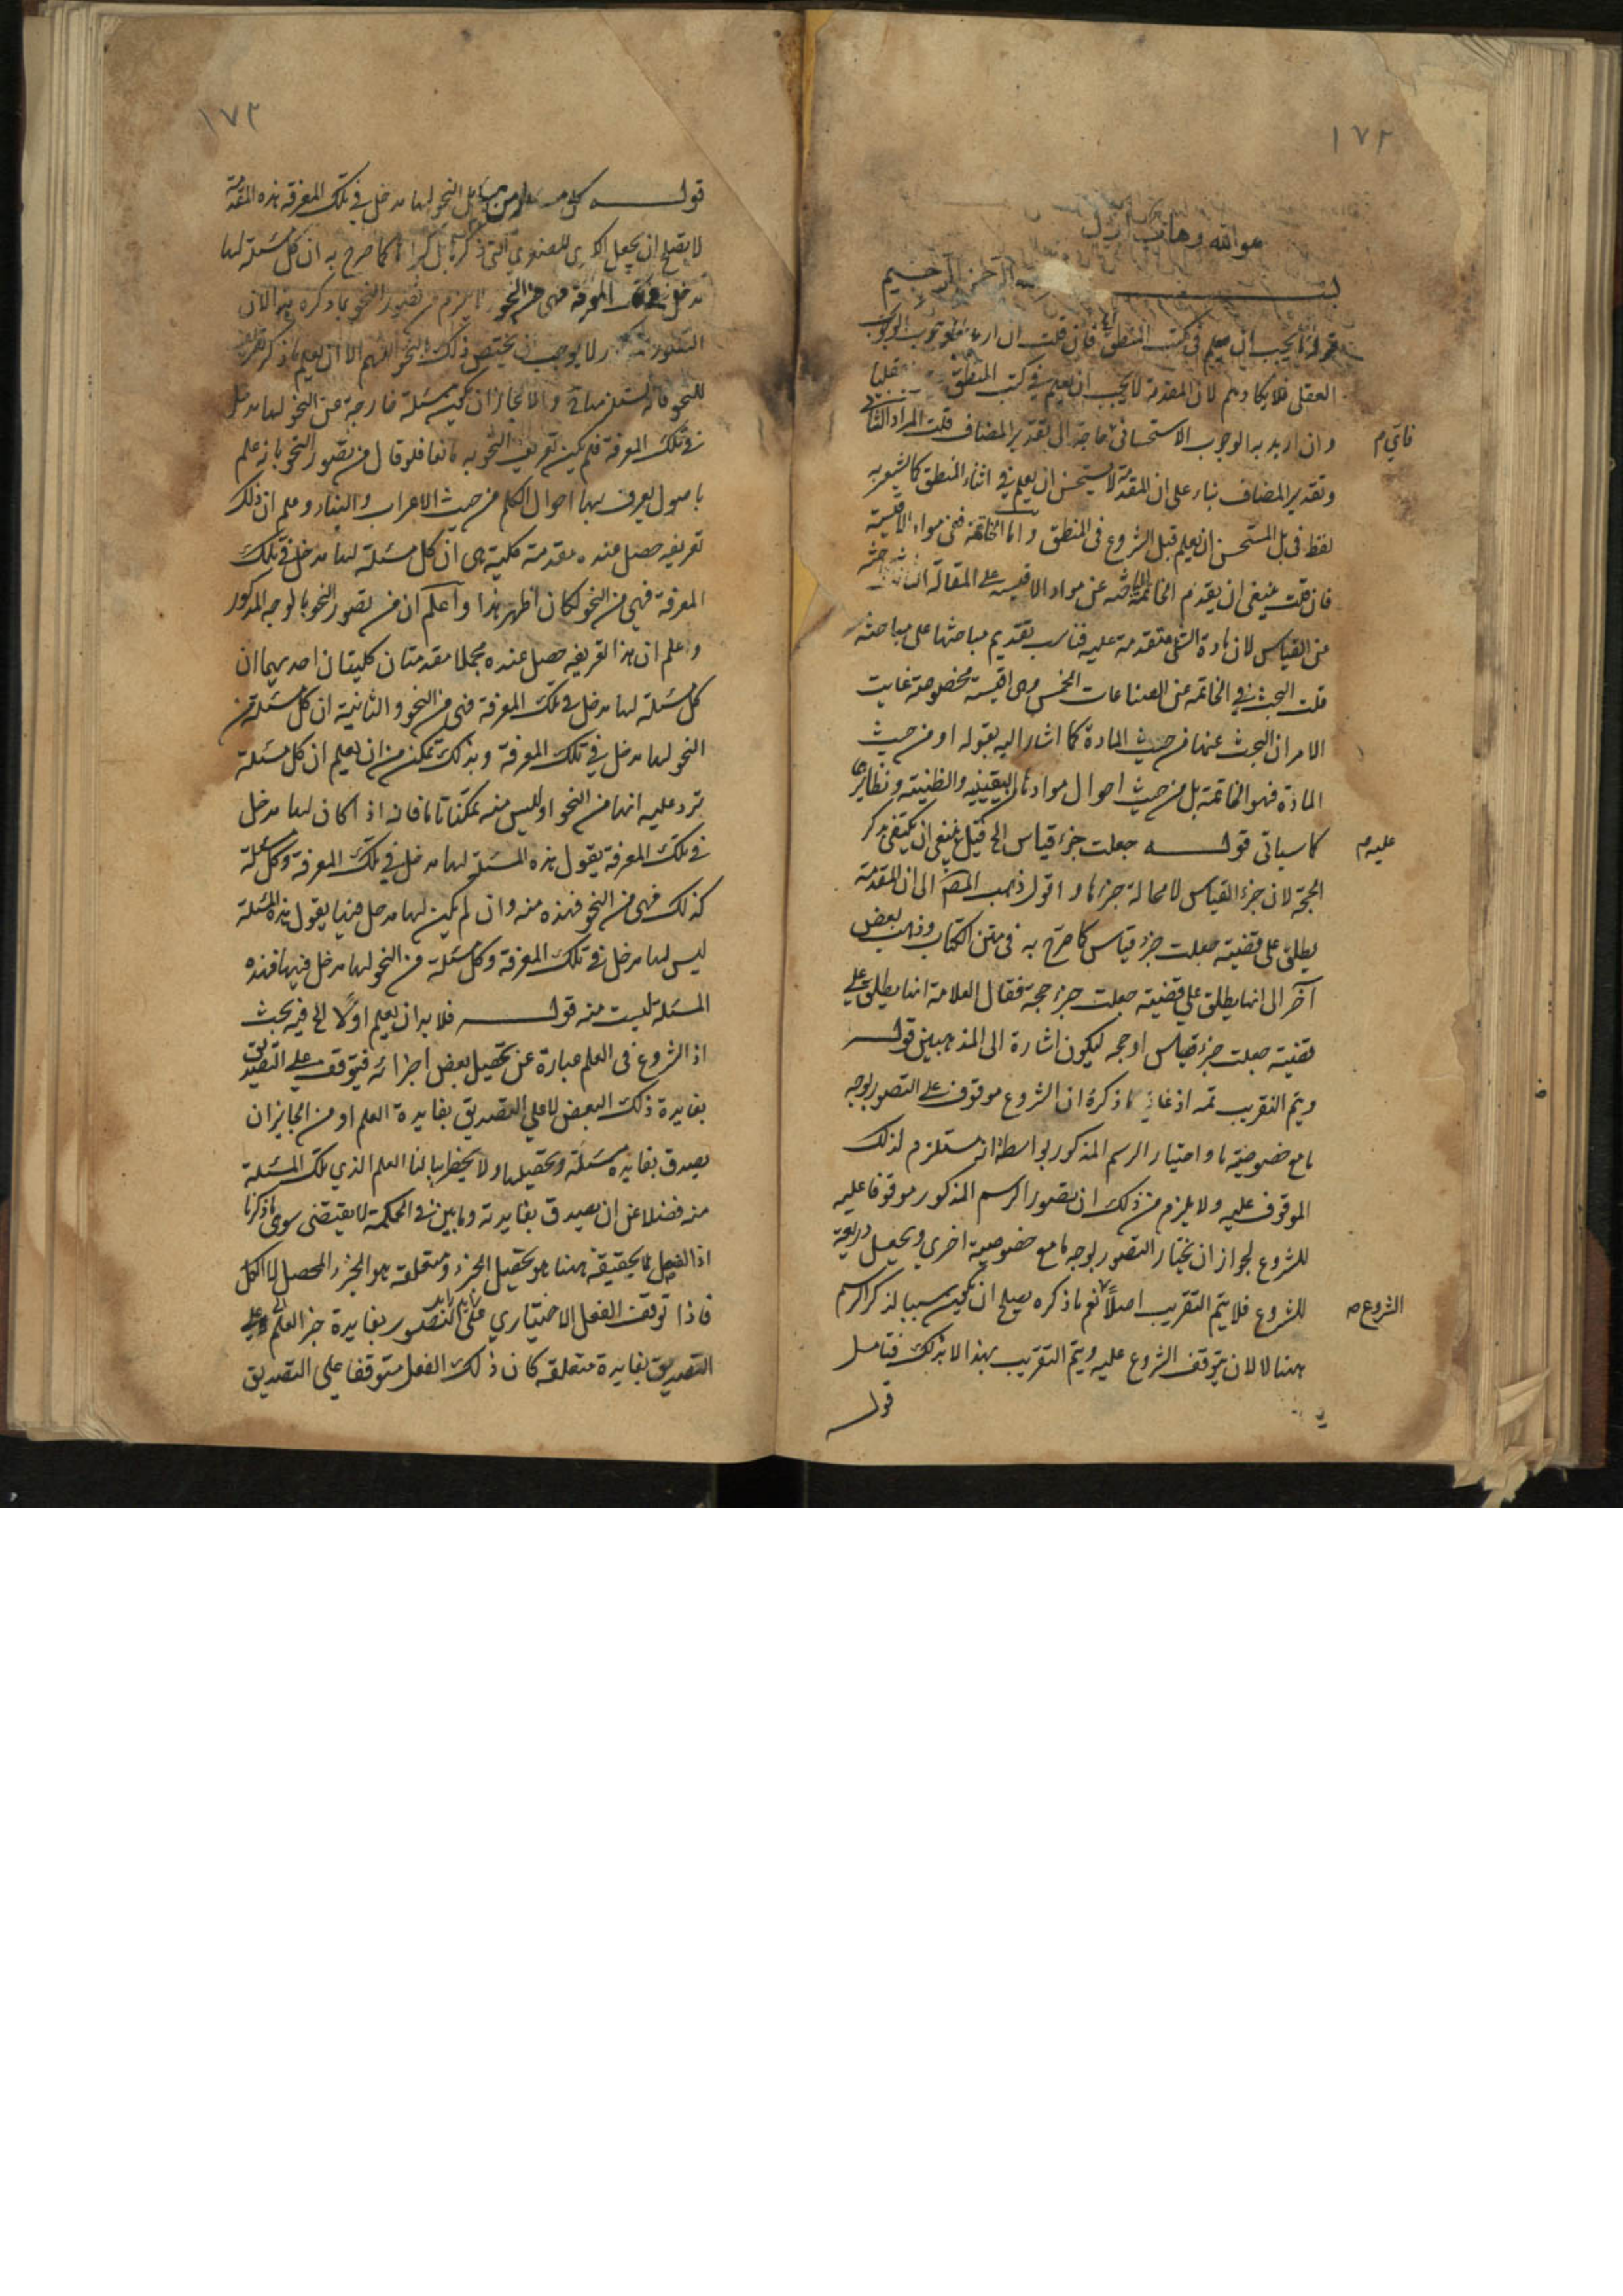 ١٧٢
هو الله وهاب
بسم الله الرحمن الرحيم
قوله يجب ان يعلم في كتب المنطق فان قلت ان اريد بالوجوب الوجوب
العقلي فلا يكاد يتم لان المقدمة لا يجب ان يعلم في كتب المنطق عقليا
وان اريد به الوجوب الاستحساني حاجة الى تقدير المضاف قلت المراد الثاني
فاي م
وتقدير المضاف بناء على ان المقدمة لا يستحسن ان يعلم في اثناء المنطق كما يشعر به
لفظ في بل المستحسن ان يعلم قبل الشروع في المنطق واما الخاتمة ففي مواد الاقيسة
فان قلت ينبغي ان يقدم الخاتمة الباحثة عن مواد الاقيسة على المقالة الثالثة الباحثة
عن القياس لان مادة الشئ متقدمة عليه فناسب تقديم مباحثها على مباحثه
قلت البحث في الخاتمة عن الصناعات الخمس وهي اقيسة مخصوصة غايت
الامر ان البحث عنها من حيث المادة كما اشار اليه بقوله او من حيث
المادة فهو الخاتمة بل من حيث احوال موادها اليقينية والظنية ونظايرها
كما سياتي قوله جعلت جزء قياس الخ قيل ينبغي ان يكتفي بذكر
عليه م
الحجة لان جزء القياس لا محالة جزءها و اقول ذهب المص الى ان المقدمة
يطلق على قضية جعلت جزء قياس كما صرح به في متن الكتاب وذهب بعض
آخر الى انها يطلق على قضية جعلت جزء حجة فقال العلامة انها يطلق على
قضية جعلت جزء قياس او حجة ليكون اشارة الى المذهبين قوله
ويتم التقريب تمه اذ غاية ما ذكره ان الشروع موقوف على التصور بوجه
ما مع خصوصية ما و اختيار الرسم المذكور بواسطة انه مستلزم لذلك
الموقوف عليه ولا يلزم من ذلك ان تصور الرسم المذكور موقوفا عليه
للشروع لجواز ان يختار التصور بوجه ما مع خصوصية اخري و يجعل ذريعة
للشروع فلا يتم التقريب اصلاً نعم ما ذكره يصلح ان يكون سببا لذكر الرسم
الشروع صه
ههنا لا لان يتوقف الشروع عليه ويتم التقريب بهذا لا بذلك فتامل
قوله
١٧٢
قوله كل مسئلة من مسائل النحو لها مدخل في تلك المعرفة هذه المقدمة
لا يصلح ان يجعل كبرى للصغرى التي ذكرها بل كما صرح به ان كل مسئلة لها
مدخل في تلك المعرفة فهي من النحو يلزم من تصور النحو بما ذكره هو الان
التصور لا يوجب ان يختص ذلك بالنحو اللهم الا ان يعلم ما ذكر تعريف
للنحو فانه يستلزمها والا لجاز ان يكون مسئلة خارجة عن النحو لها مدخل
في تلك المعرفة فلم يكن تعريف النحو به مانعا فلو قال من تصور النحو بانه علم
باصول يعرف بها احوال الكلم من حيث الاعراب والبناء و علم ان ذلك
تعريفه حصل عنده مقدمة كلية هي ان كل مسئلة لها مدخل في تلك
المعرفة فهي من النحو لكان اظهر هذا و اعلم ان من تصور النحو بالوجه المذكور
واعلم ان هذا تعريفه حصل عنده مجملا مقدمتان كليتان احديهما ان
كل مسئلة لها مدخل في تلك المعرفة فهي من النحو و الثانية ان كل مسئلة من
النحو لها مدخل في تلك المعرفة وبذلك تمكن من ان يعلم ان كل مسئلة
ترد عليه انها من النحو او ليس منه تمكنا تاما فانه اذا كان لها مدخل
في تلك المعرفة يقول هذه المسئلة لها مدخل في تلك المعرفة وكل مسئلة
كذلك فهي من النحو فهذه منه و ان لم يكن لها مدخل فيها يقول هذه المسئلة
ليس لها مدخل في تلك المعرفة وكل مسئلة من النحو لها مدخل فيها فهذه
المسئلة ليست منه قوله فلا بد ان يعلم اولًا الخ فيه بحث
اذ الشروع في العلم عبارة عن تحصيل بعض اجزائه فيتوقف على التصديق
بفايدة ذلك البعض لا على التصديق بفايدة العلم او من الجايز ان
يصدق بفايدة مسئلة وتحصيلها ولا يخطر ببالنا العلم الذي تلك المسئلة
منه فضلا عن ان يصدق بفايدته وما بين في الحكمة لا يقتضي سوى ما ذكرنا
اذ الفعل بالحقيقة ههنا هو تحصيل الجزء و متعلقه هو الجزء المحصل لا الكل
فاذا توقف الفعل الاختياري على التصور بفايدة جزء العلم و على
التصديق بفايدة متعلقه كان ذلك الفعل متوقفا على التصديق